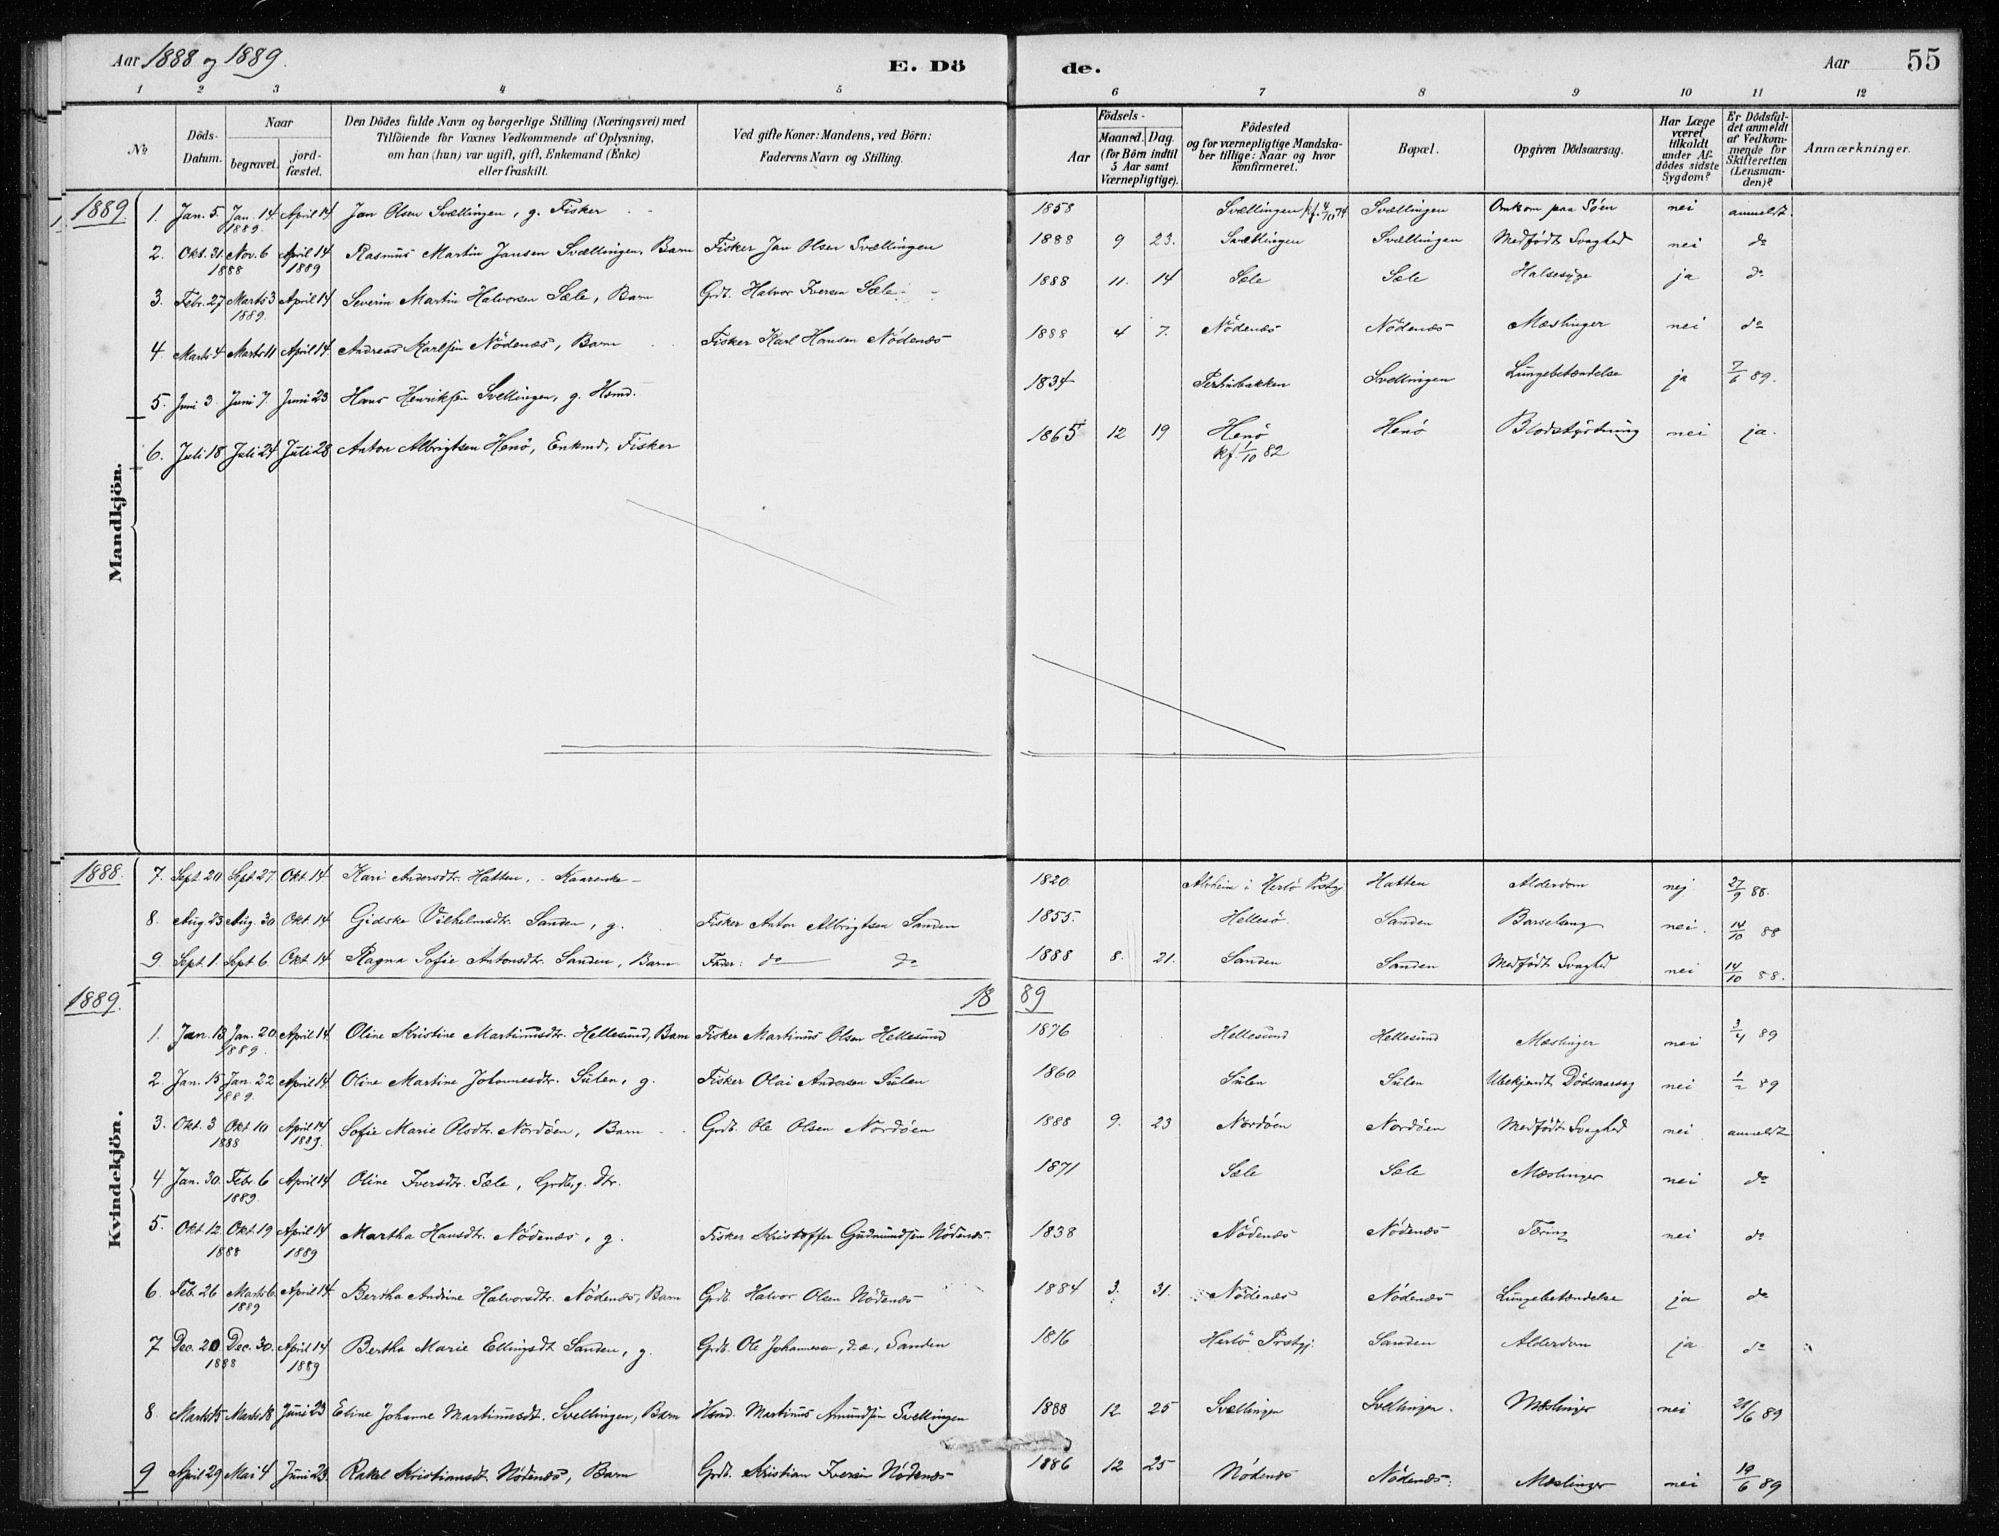 Aar 1888 og 1889.
E. Dö de.
Aar 55
1 2 3 4 5 6 7 8 9 10 11 12
№
Döds-Datum.
Naar
begravet.
jord-fæstet.
Den Dödes fulde Navn og borgerlige Stilling (Næringsvei) med
Tilföiende for Voxnes Vedkommende af Oplysning,
om han (hun) var ugift, gift, Enkemand (Enke)
eller fraskilt.
Ved gifte Koner: Mandens, ved Börn:
Faderens Navn og Stilling.
Födsels-
Aar
Maaned. Dag.
(for Börn indtil
5 Aar samt
Værnepligtige).
Födested
og for værnepligtige Mandska-
ber tillige: Naar og hvor
konfirmeret.
Bopæl.
Opgiven Dödsaarsag.
Har Læge
været
tilkaldt
under Af-
dödes sidste
Sygdom?
Er Dödsfal-
det anmeldt
af Vedkom-
mende for
Skifteretten
(Lensman-
den)?
Anmærkninger.
Mandkjön.
1889. 1. Jan. 5. Jan. 14. 1889. April 14 Jan Olsen Svællingen, g. Fisker 1858 Svællingen kf. 4/10 74 Svællingen Omkom paa Söen nei anmeldt.
2. Okt. 31. Nov. 6 1888 April 14 1889 Rasmus Martin Jansen Svællingen, Barn Fisker Jan Olsen Svællingen 1888 9 23. Svællingen Svællingen Medfødt Svaghed nei do
3. Febr. 27 Marts 3 1889. April 14 Severin Martin Halvorsen Sæle, Barn Grdb. Halvor Iversen Sæle 1888 11. 14 Sæle Sæle Halsesyge ja do
4 Marts 4 Marts 11 April 14 Andreas Karlsen Nödenæs, Barn Fisker Karl Hansen Nödenæs 1888 4 7. Nödenæs Nödenæs Mæslinger nei do
5. Juni 3. Juni 7. Juni 23 Hans Henriksen Svellingen, g. Hsmd. 1834 Svellingen Lungebetændelse ja 7/6 89.
6. Juli 18 Juli 24 Juli 28 Anton Albrigtsen Henö, Enkmd, Fisker 1865 12 19 Henö kf. 1/10 82 Henö Blodstyrtning nei ja.
Kvindekjön.
1888. 7. Sept. 20 Sept. 27 Okt. 14 Kari Andersdtr. Hatten, Kaarenke 1820. Herlö Prstgj Hatten Alderdom nej 27/9 88.
8 Aug. 23 Aug. 30 Okt. 14 Gidske Vilhelmsdtr. Sanden, g. Fisker Anton Albrigtsen Sanden 1855. Hellesö Sanden Barselseng nei. 14/10 88
9. Sept. 1. Sept. 6 Okt. 14 Ragna Sofie Antonsdtr. Sanden, Barn Fader: do do 1888 8. 21. Sanden Sanden Medfødt Svaghed nei 14/10 88.
1889. 18 89
1. Jan. 13 Jan. 20 1889. April 14 Oline Kristine Martinusdtr. Hellesund, Barn Fisker Martinus Olsen Hellesund 1876 Hellesund Hellesund Mæslinger nei 3/4 89
2. Jan. 15 Jan. 22 1889. April 14 Oline Martine Johannesdtr. Sulen, g. Fisker Olai Andersen Sulen 1860 Sulen Sulen Ubekjendt Dödsaarsag nei 1/2 89
3. Okt. 3 Okt. 10 1888 April 14 1889. Sofie Marie Olsdtr. Nordöen, Barn Grdb. Ole Olsen Nordöen 1888 9. 23 Nordöen Nordöen Medfødt Svaghed nei anmeldt
4 Jan. 30. Febr. 6 1889. April 14 Oline Iversdtr. Sæle, Grdbg. Dtr. 1871 Sæle Sæle Mæslinger nei do
5. Okt. 12 Okt. 19 1888 April 14 1889 Martha Hansdtr. Nödenæs, g. Fisker Kristoffer Gudmundsen Nödenæs 1838 Nödenæs Nödenæs Tæring nei do
6 Feb. 26 Marts 6. 1889 April 14 Bertha Andrine Halvorsdtr. Nödenæs, Barn Grdb. Halvor Olsen Nödenæs 1884 3. 31. Nödenæs Nödenæs Lungebetændelse ja do
7 Dec. 20 Dec. 30. 1888 April 14 1889 Bertha Marie Ellingsdt. Sanden, g. Grdb. Ole Johannesen, d.æ., Sanden 1816 Herlö Prstgj. Sanden Alderdom ja do
8 Marts 15 Marts 18 Juni 23 Eline Johanne Martinusdtr. Svellingen, Barn Hsmd. Martinus Amundsen Svellingen 1888 12 25 Svællingen Svellingen. Mæslinger nei 21/6 89
9 April 29 Mai 4 Juni 23 Rakel Kristiansdt. Nödenæs, Barn Grdb. Kristian Iversen Nödenæs 1886 12 25 Nödenæs Nödenæs. Mæslinger nei 19/6 89